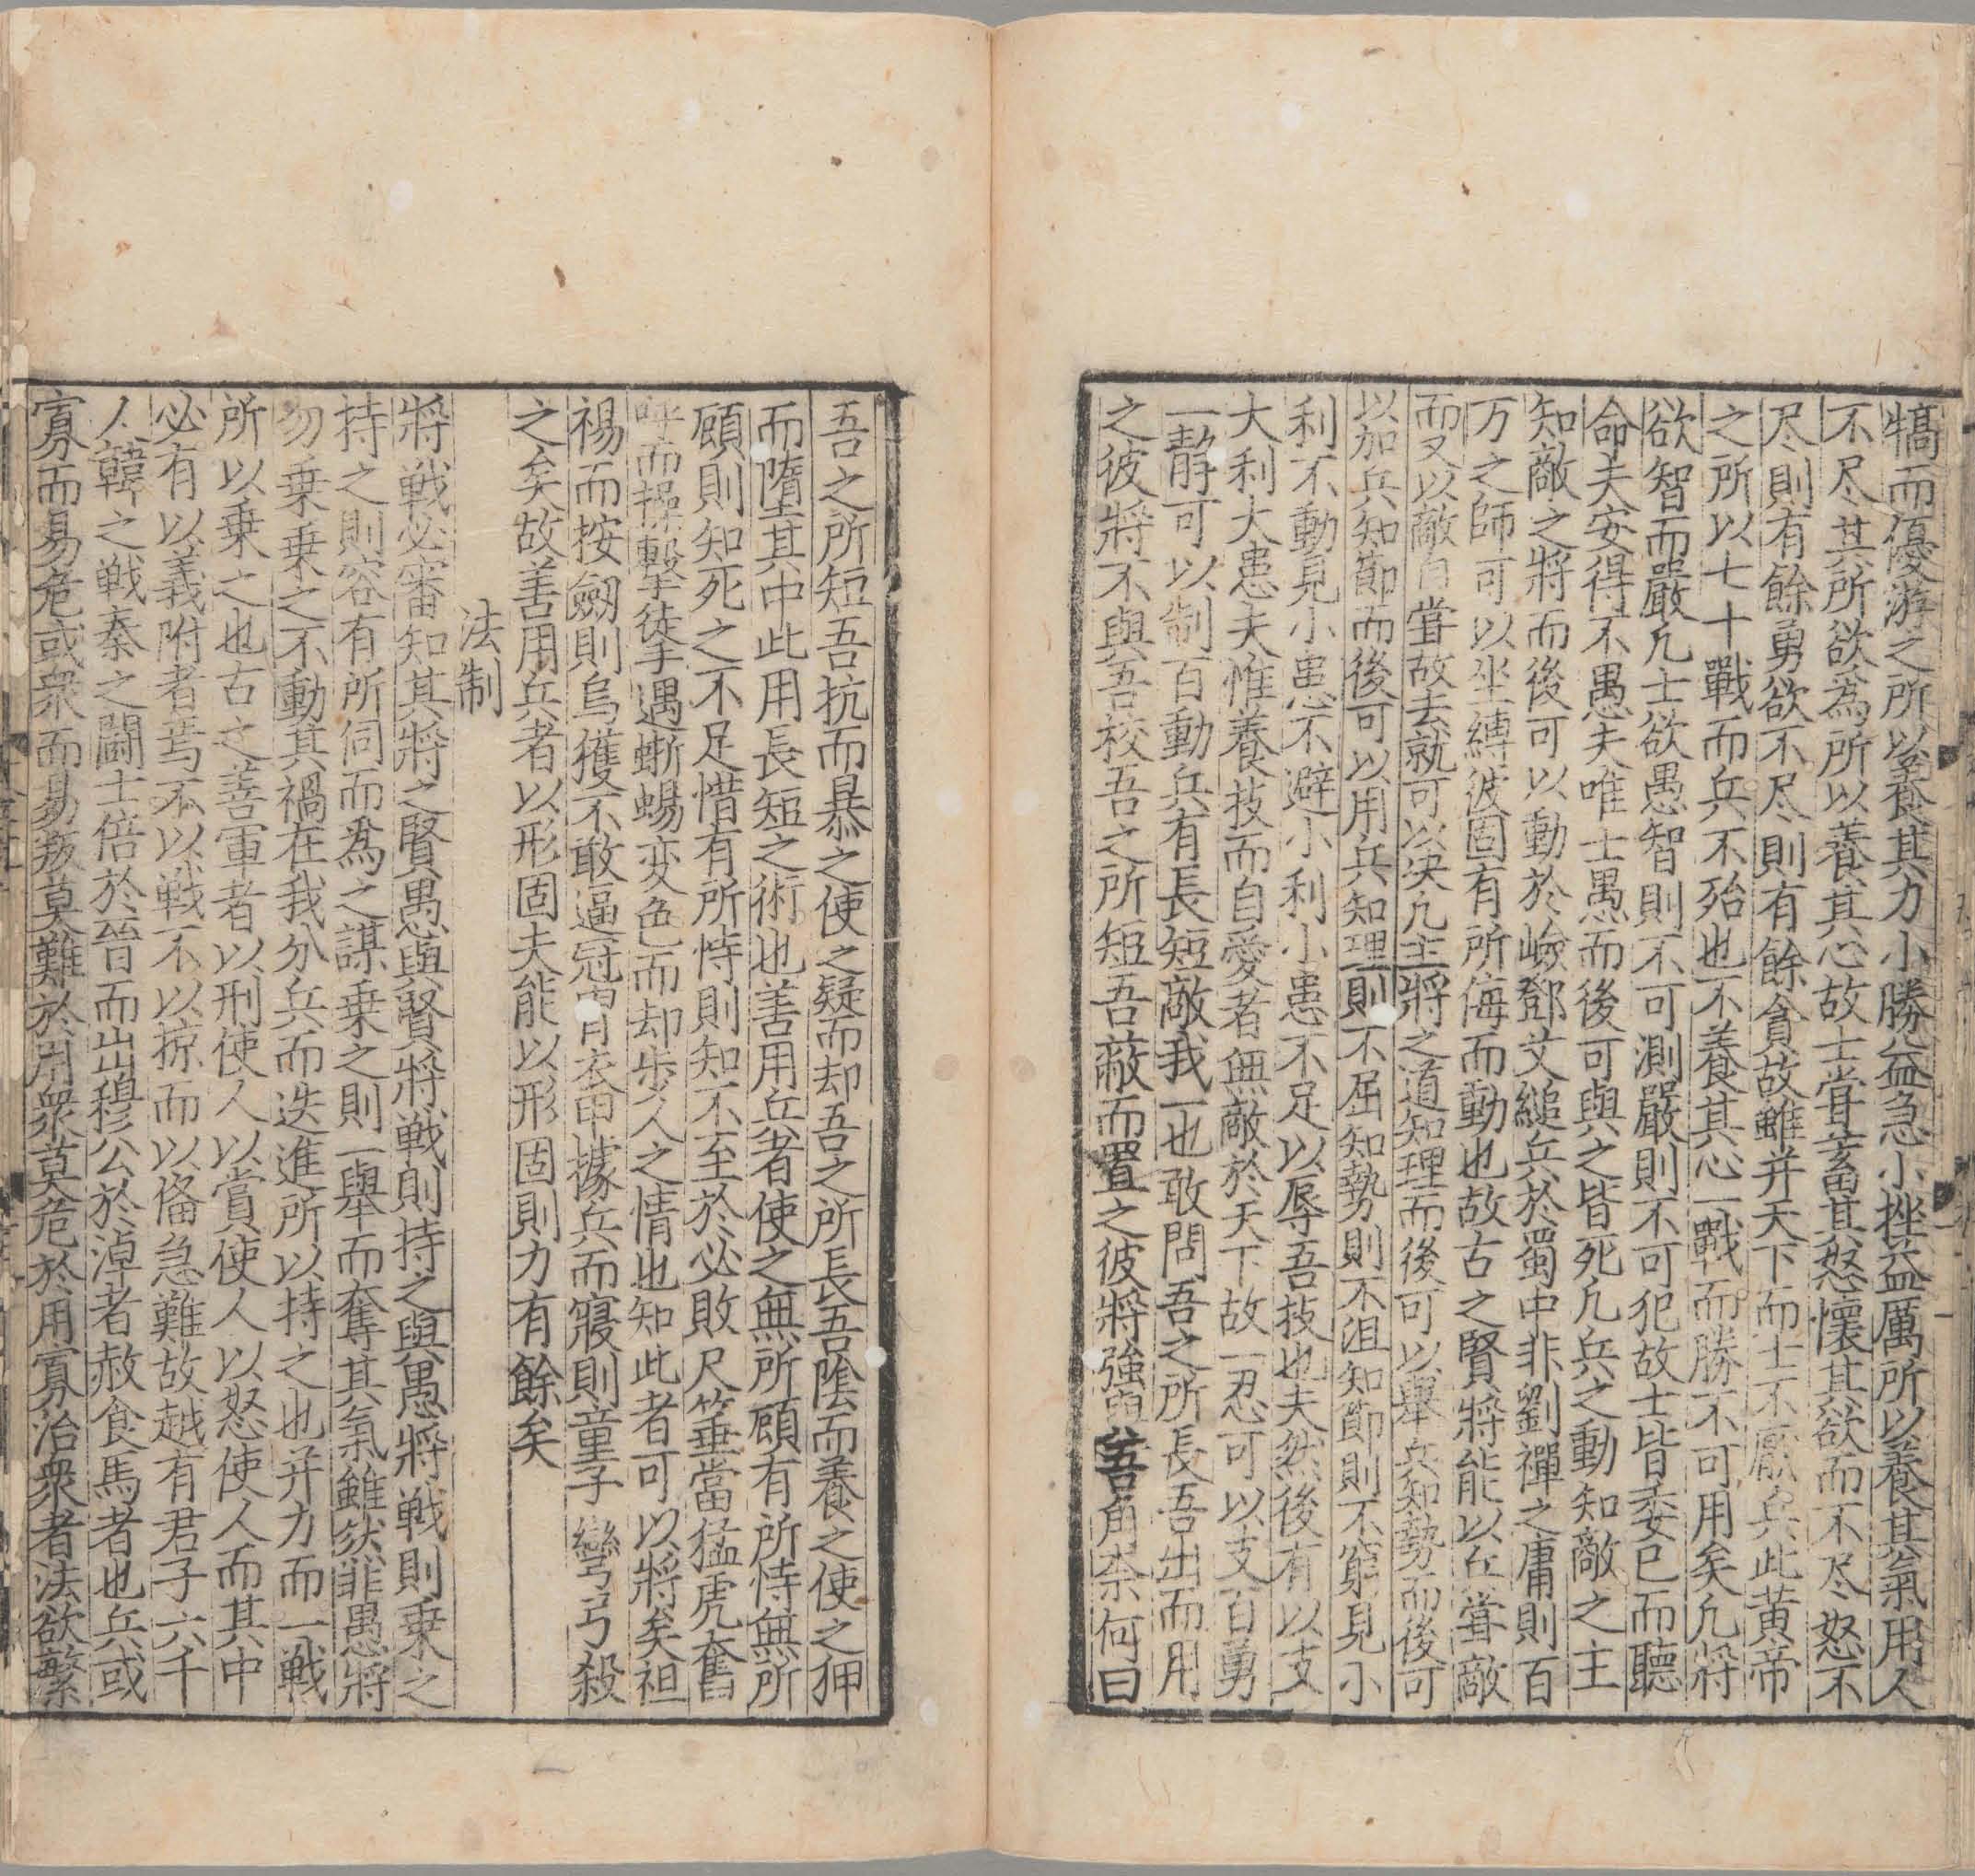 犒而優游之所以養其力小勝益急小挫益厲所以養其氣用人
不尽其所欲為所以養其心故士甞蓄其怒懷其欲而不尽怒不
尽則有餘勇欲不尽則有餘貪故雖并天下而士不厭兵此黄帝
之所以七十戰而兵不殆也不養其心一戰而勝不可用矣凡将
欲智而嚴凡士欲愚智則不可測嚴則不可犯故士皆委已而聽
命夫安得不愚夫唯士愚而後可與之皆死凡兵之動知敵之主
知敵之將而後可以動於嶮鄧艾縋兵於蜀中非劉禪之庸則百
万之師可以坐縛彼固有所侮而動也故古之賢將能以兵甞敵
而又以敵自甞故去就可以决凡主將之道知理而後可以舉兵知勢而後可
以加兵知節而後可以用兵知理則不屈知勢則不沮知節則不窮見小
利不動見小患不避小利小患不足以辱吾技也夫然後有以支
大利大患夫惟養技而自愛者無敵於天下故一忍可以支百勇
一靜可以制百動兵有長短敵我一也敢問吾之所長吾出而用
之彼將不與吾校吾之所短吾蔽而置之彼將強與吾角奈何曰
吾之所短吾抗而暴之使之疑而却吾之所長吾陰而養之使之狎
而墮其中此用長短之術也善用兵者使之無所顧有所恃無所
顧則知死之不足惜有所恃則知不至於必敗尺箠當猛虎奮
呼而操擊徒手遇蜥蜴変色而却步人之情也知此者可以將矣袒
裼而按劒則烏獲不敢逼冠胄衣甲據兵而寢則童子彎弓殺
之矣故善用兵者以形固夫能以形固則力有餘矣
法制
將戦必審知其將之賢愚與賢將戦則持之與愚將戦則乗之
持之則容有所伺而為之謀乗之則一舉而奪其氣雖然非愚將
勿乗乗之不動其禍在我分兵而迭進所以持之也并力而一戦
所以乗之也古之善軍者以刑使人以賞使人以怒使人而其中
必有以義附者焉不以戦不以掠而以俻急難故越有君子六千
人韓之戦秦之鬬士倍於晉而出穆公於淖者赦食馬者也兵或
寡而易危或衆而易叛莫難於用衆莫危於用寡治衆者法欲繁